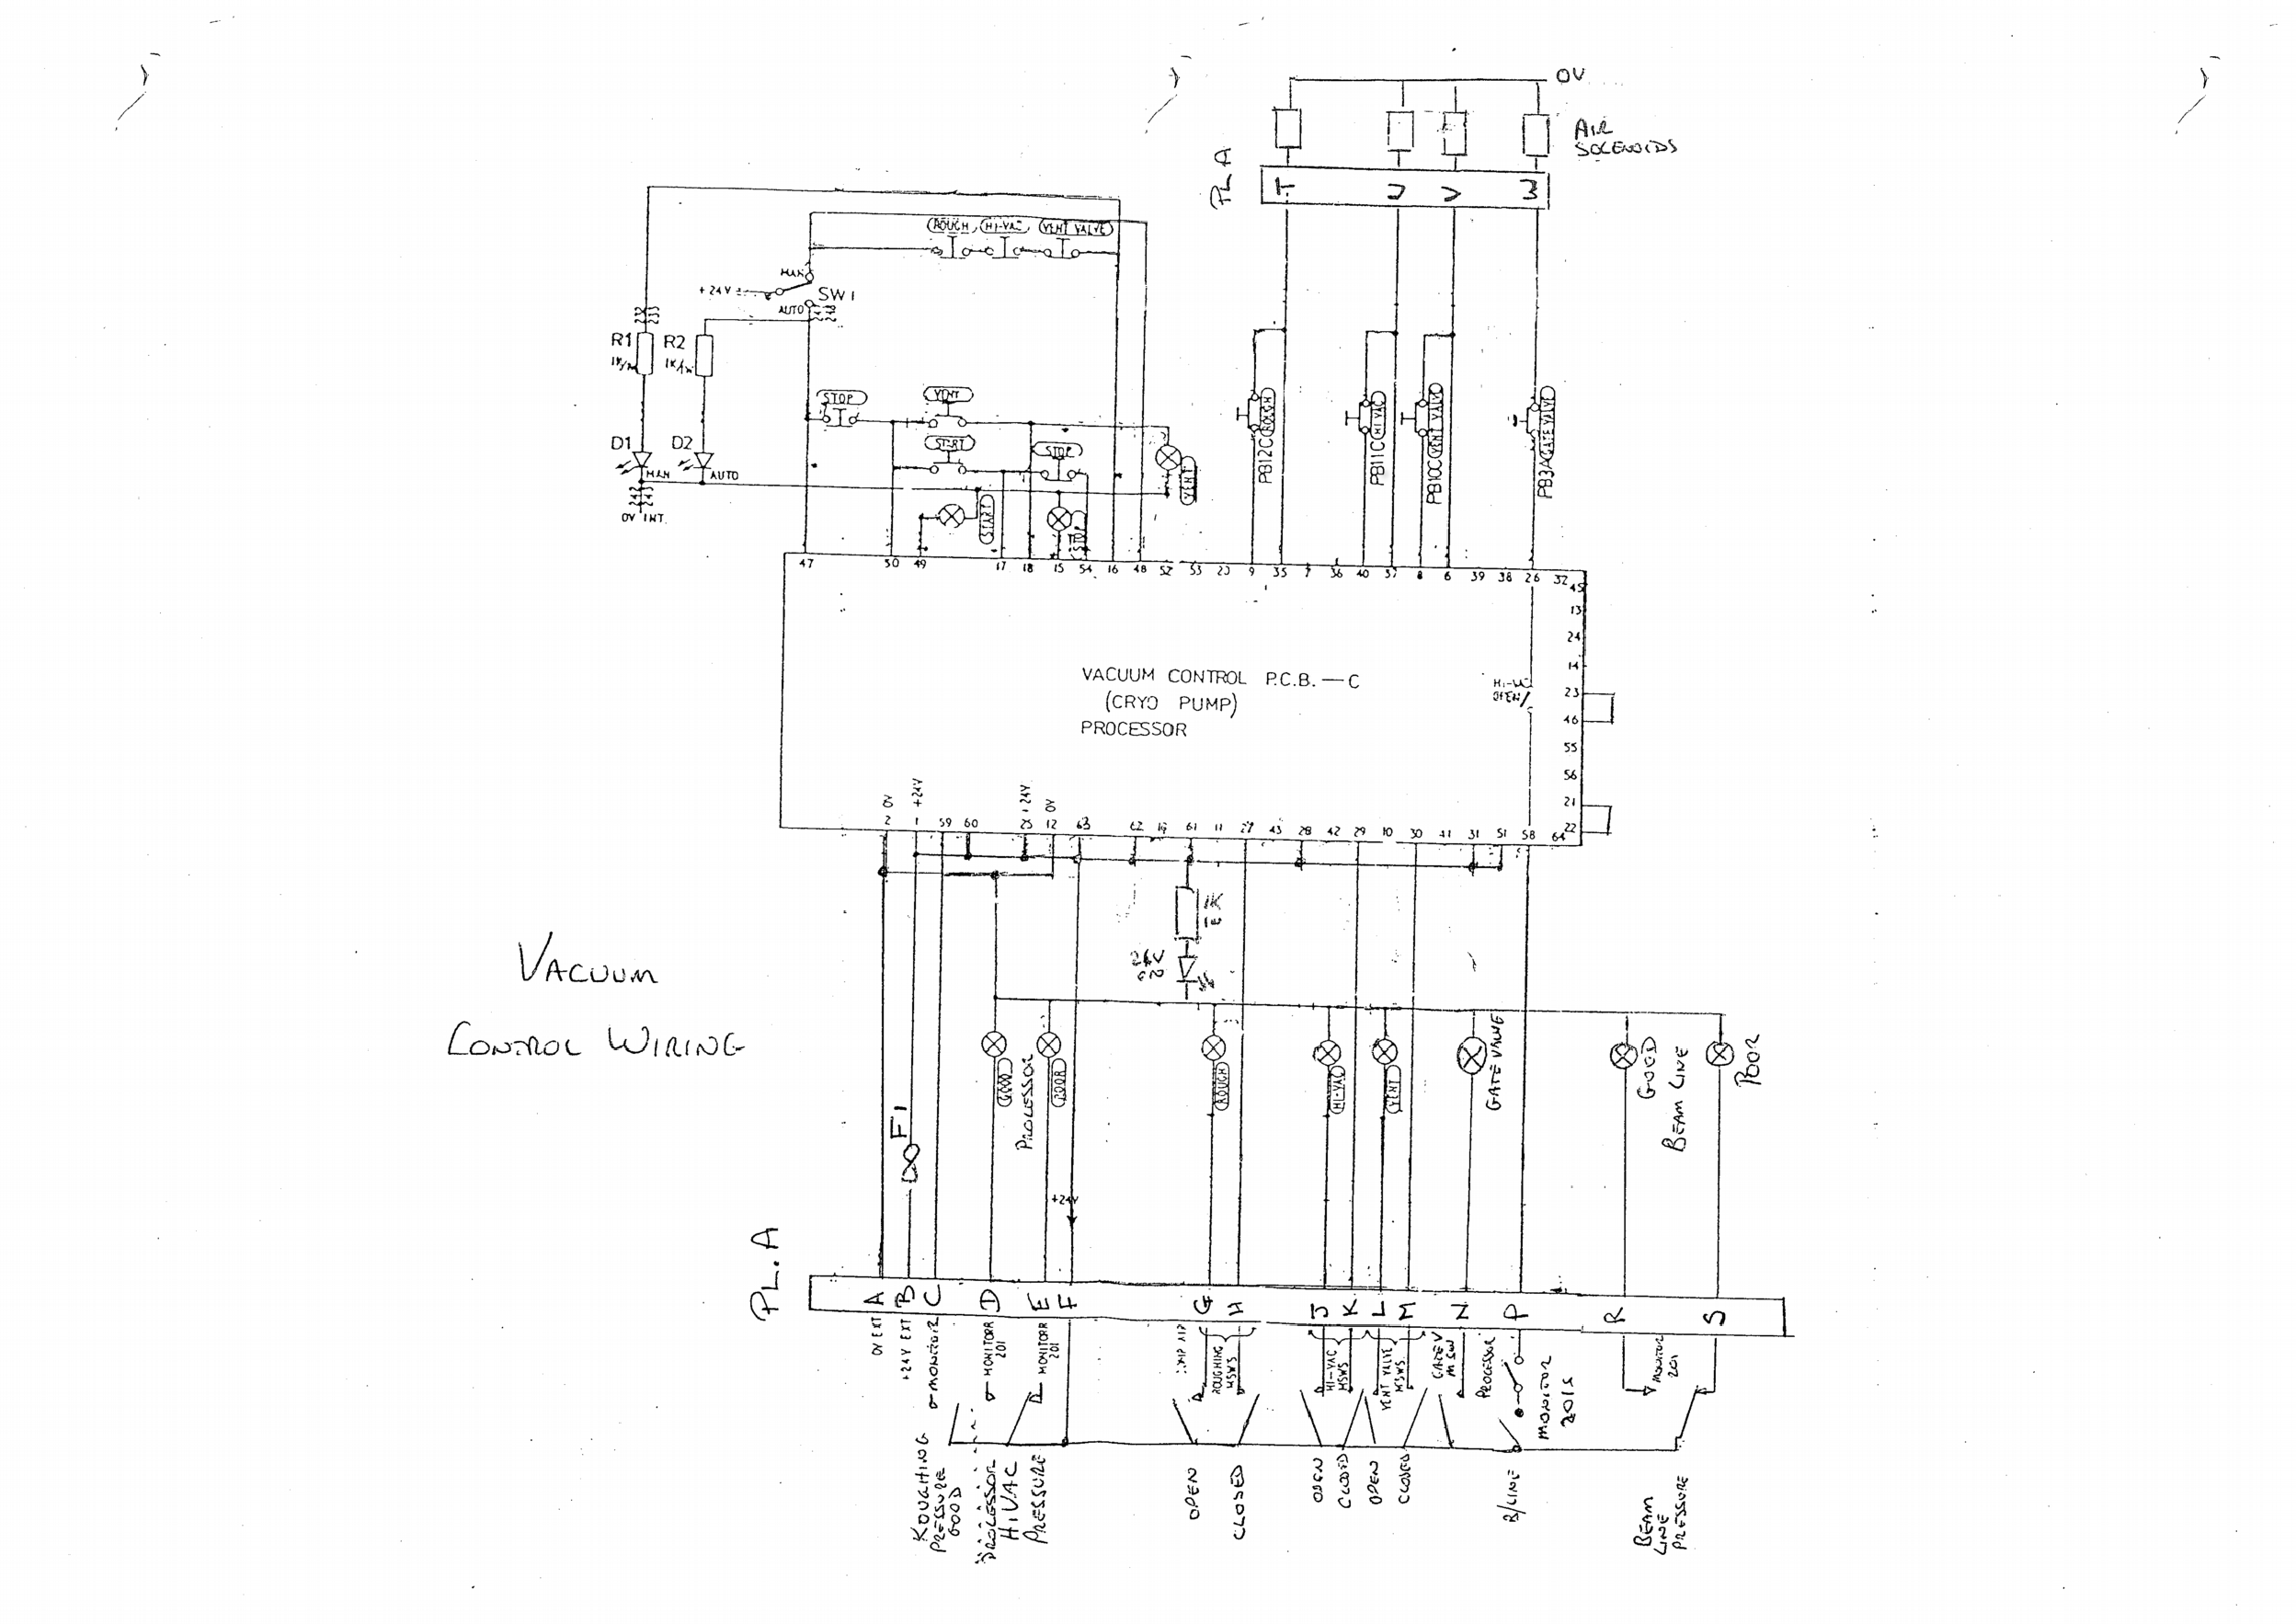 OV
AIR
SOLENOIDS
PL A
T U V W
ROUGH HI-VAC VENT VALVE
MAN
+24V
SW1
AUTO
232
233
R1 R2
STOP VENT
START STOP
D1 D2
MAN AUTO
242
243
OV INT.
START
STOP
VENT
PB12C ROUGH
PB11C HI VAC
PB10C VENT VALVE
PB3A GATE VALVE
47 50 49 17 18 15 54 16 48 52 53 20 9 35 7 36 40 37 8 6 39 38 26 32
45
13
24
14
23
46
55
56
21
22
VACUUM CONTROL P.C.B. — C
(CRYO PUMP)
PROCESSOR
HI-VAC
OPEN
OV +24V +24V OV
2 1 59 60 25 12 63 62 19 61 11 27 43 28 42 29 10 30 41 31 51 58 64
1K
VACUUM
CONTROL WIRING
GOOD
PROCESSOR
POOR
ROUGH
HI-VAC
VENT
GATE VALVE
GOOD
BEAM LINE
POOR
F1
+24V
PL.A
A B C D E F G H J K L M N P R S
OV EXT
+24V EXT
MONITOR
MONITORR
201
MONITORR
201
ROUGHING
MSWS
HI-VAC
MSWS
VENT VALVE
MSWS
GATE V
MSW
PROCESSOR
MONITOR
201S
MONITOR
201
ROUGHING
PRESSURE
GOOD
PROCESSOR
HI VAC
PRESSURE
OPEN
CLOSED
OPEN
CLOSED
OPEN
CLOSED
B/LINE
BEAM
LINE
PRESSURE